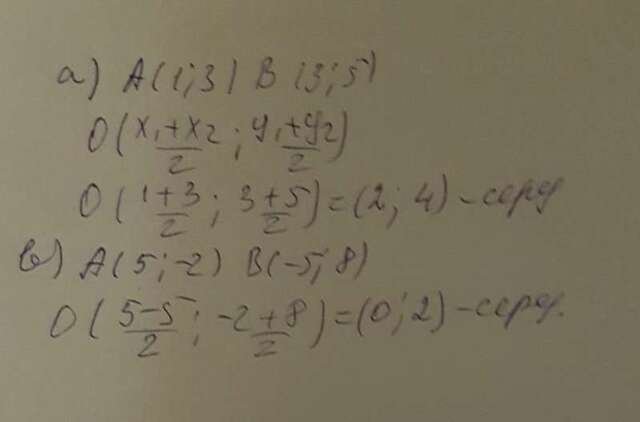 а) A(1;3) B(3;5)
O(x₁+x₂/2 ; y₁+y₂/2)
O(1+3/2 ; 3+5/2)=(2; 4) – серед
в) A(5;-2) B(-5;8)
O(5-5/2 ; -2+8/2)=(0;2) – серед.